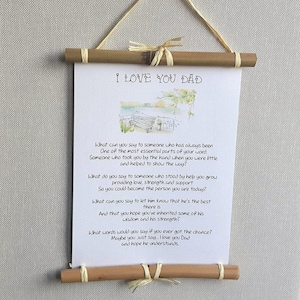 I LOVE YOU DAD
What can you say to someone who has always been
One of the most essential parts of your word
Someone who took you by the hand when you were little
and helped to show the way?
What do you say to someone who stood by help you grow
providing love, strength and support
So you could become the person you are today?
What can you say to let him know that he's the best
there is
And that you hope you've inherited some of his
wisdom and his strength?
What words would you say if you ever got the chance?
Maybe you just say.. I love you Dad
and hope he understands